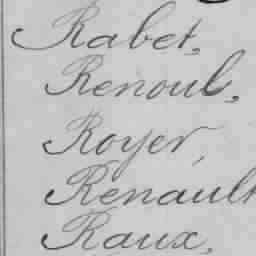 Rabet,
Renoul,
Royer,
Renault
Raux,